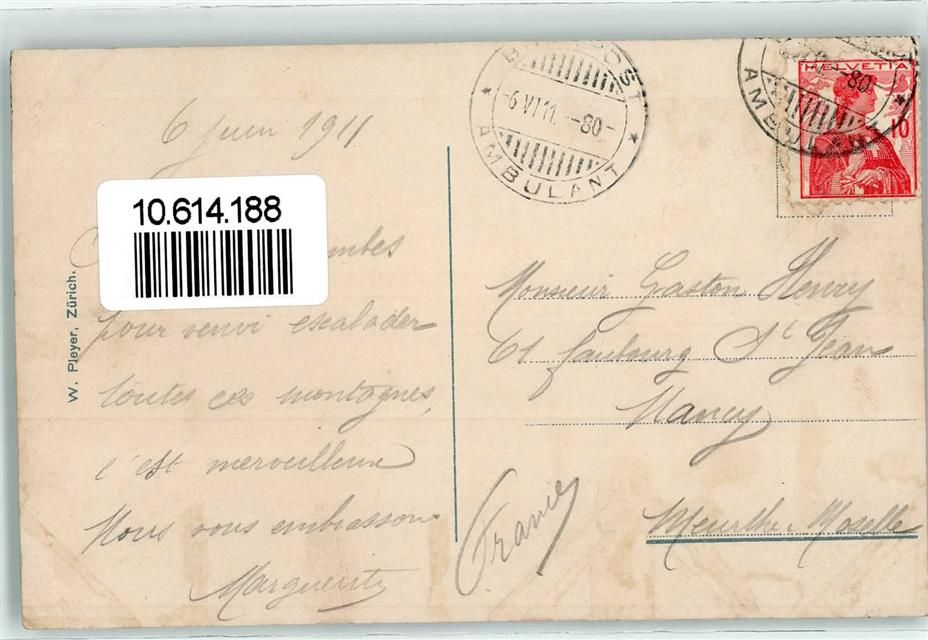 6 juin 1911
10.614.188
pour venir escalader
toutes ces montagnes,
c'est merveilleux
Nous vous embrassons
Marguerite
W. Pleyer, Zürich.
AMBULANT
-6 VI 11. -80-
HELVETIA
10
AMBULANT
80.
Monsieur Gaston Henry
61 faubourg St Jean
Nancy
Meurthe & Moselle
(France)